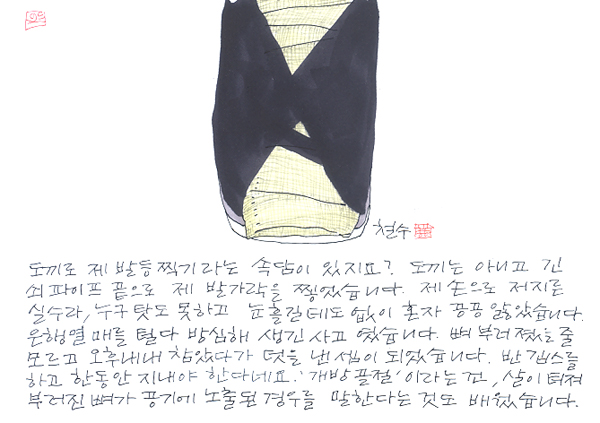 철수
도끼로 제 발등 찍기라는 속담이 있지요? 도끼는 아니고 긴
쇠파이프 끝으로 제 발가락을 찧었습니다. 제 손으로 저지른
실수라, 누구 탓도 못하고 눈 흘길 데도 없이 혼자 끙끙 앓았습니다.
은행열매를 털다 방심해 생긴 사고였습니다. 뼈 부러졌는 줄
모르고 오후내내 참았다가 덧을 낸 셈이 되었습니다. 반 깁스를
하고 한동안 지내야 한다네요. '개방골절'이라는 건, 살이 터져
부러진 뼈가 공기에 노출된 경우를 말한다는 것도 배웠습니다.